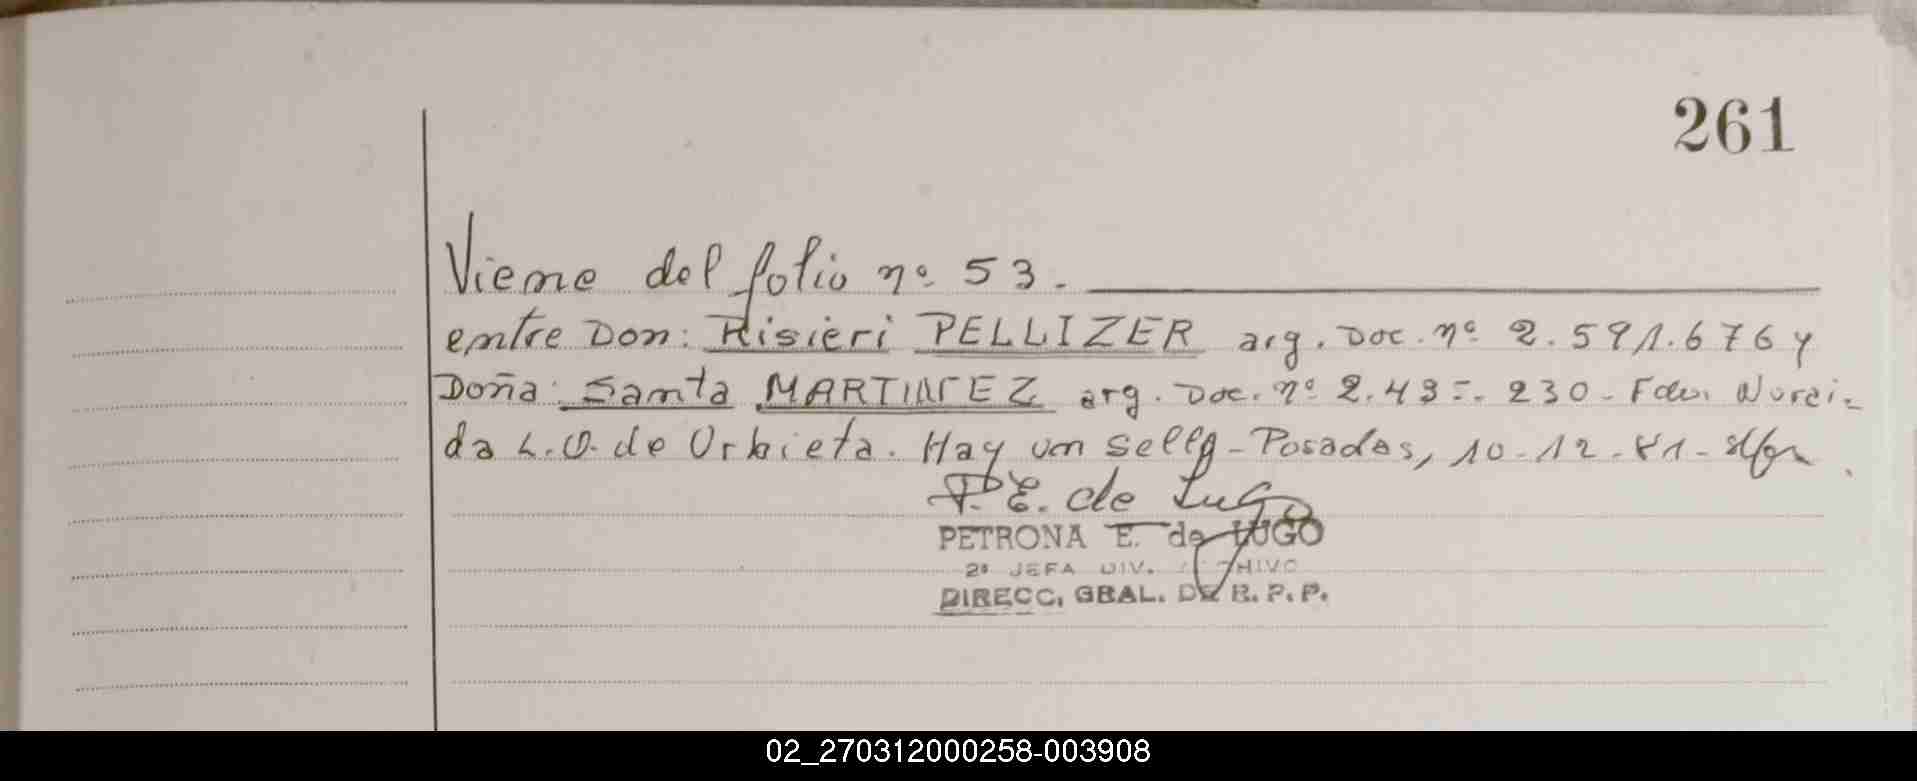 261
Viene del folio nº 53.
entre Don: Risieri PELLIZER arg. Doc. nº 2.591.676 y
Doña: Santa MARTINEZ arg. Doc. nº 230 - Fdo. Norei-
da L.O. de Urbieta. Hay un sello - Posadas, 10-12-81-
P.E. de Lugo
PETRONA E. de LUGO
2ª JEFA DIV.
DIRECC. GRAL. DE R.P.P.
02_270312000258-003908